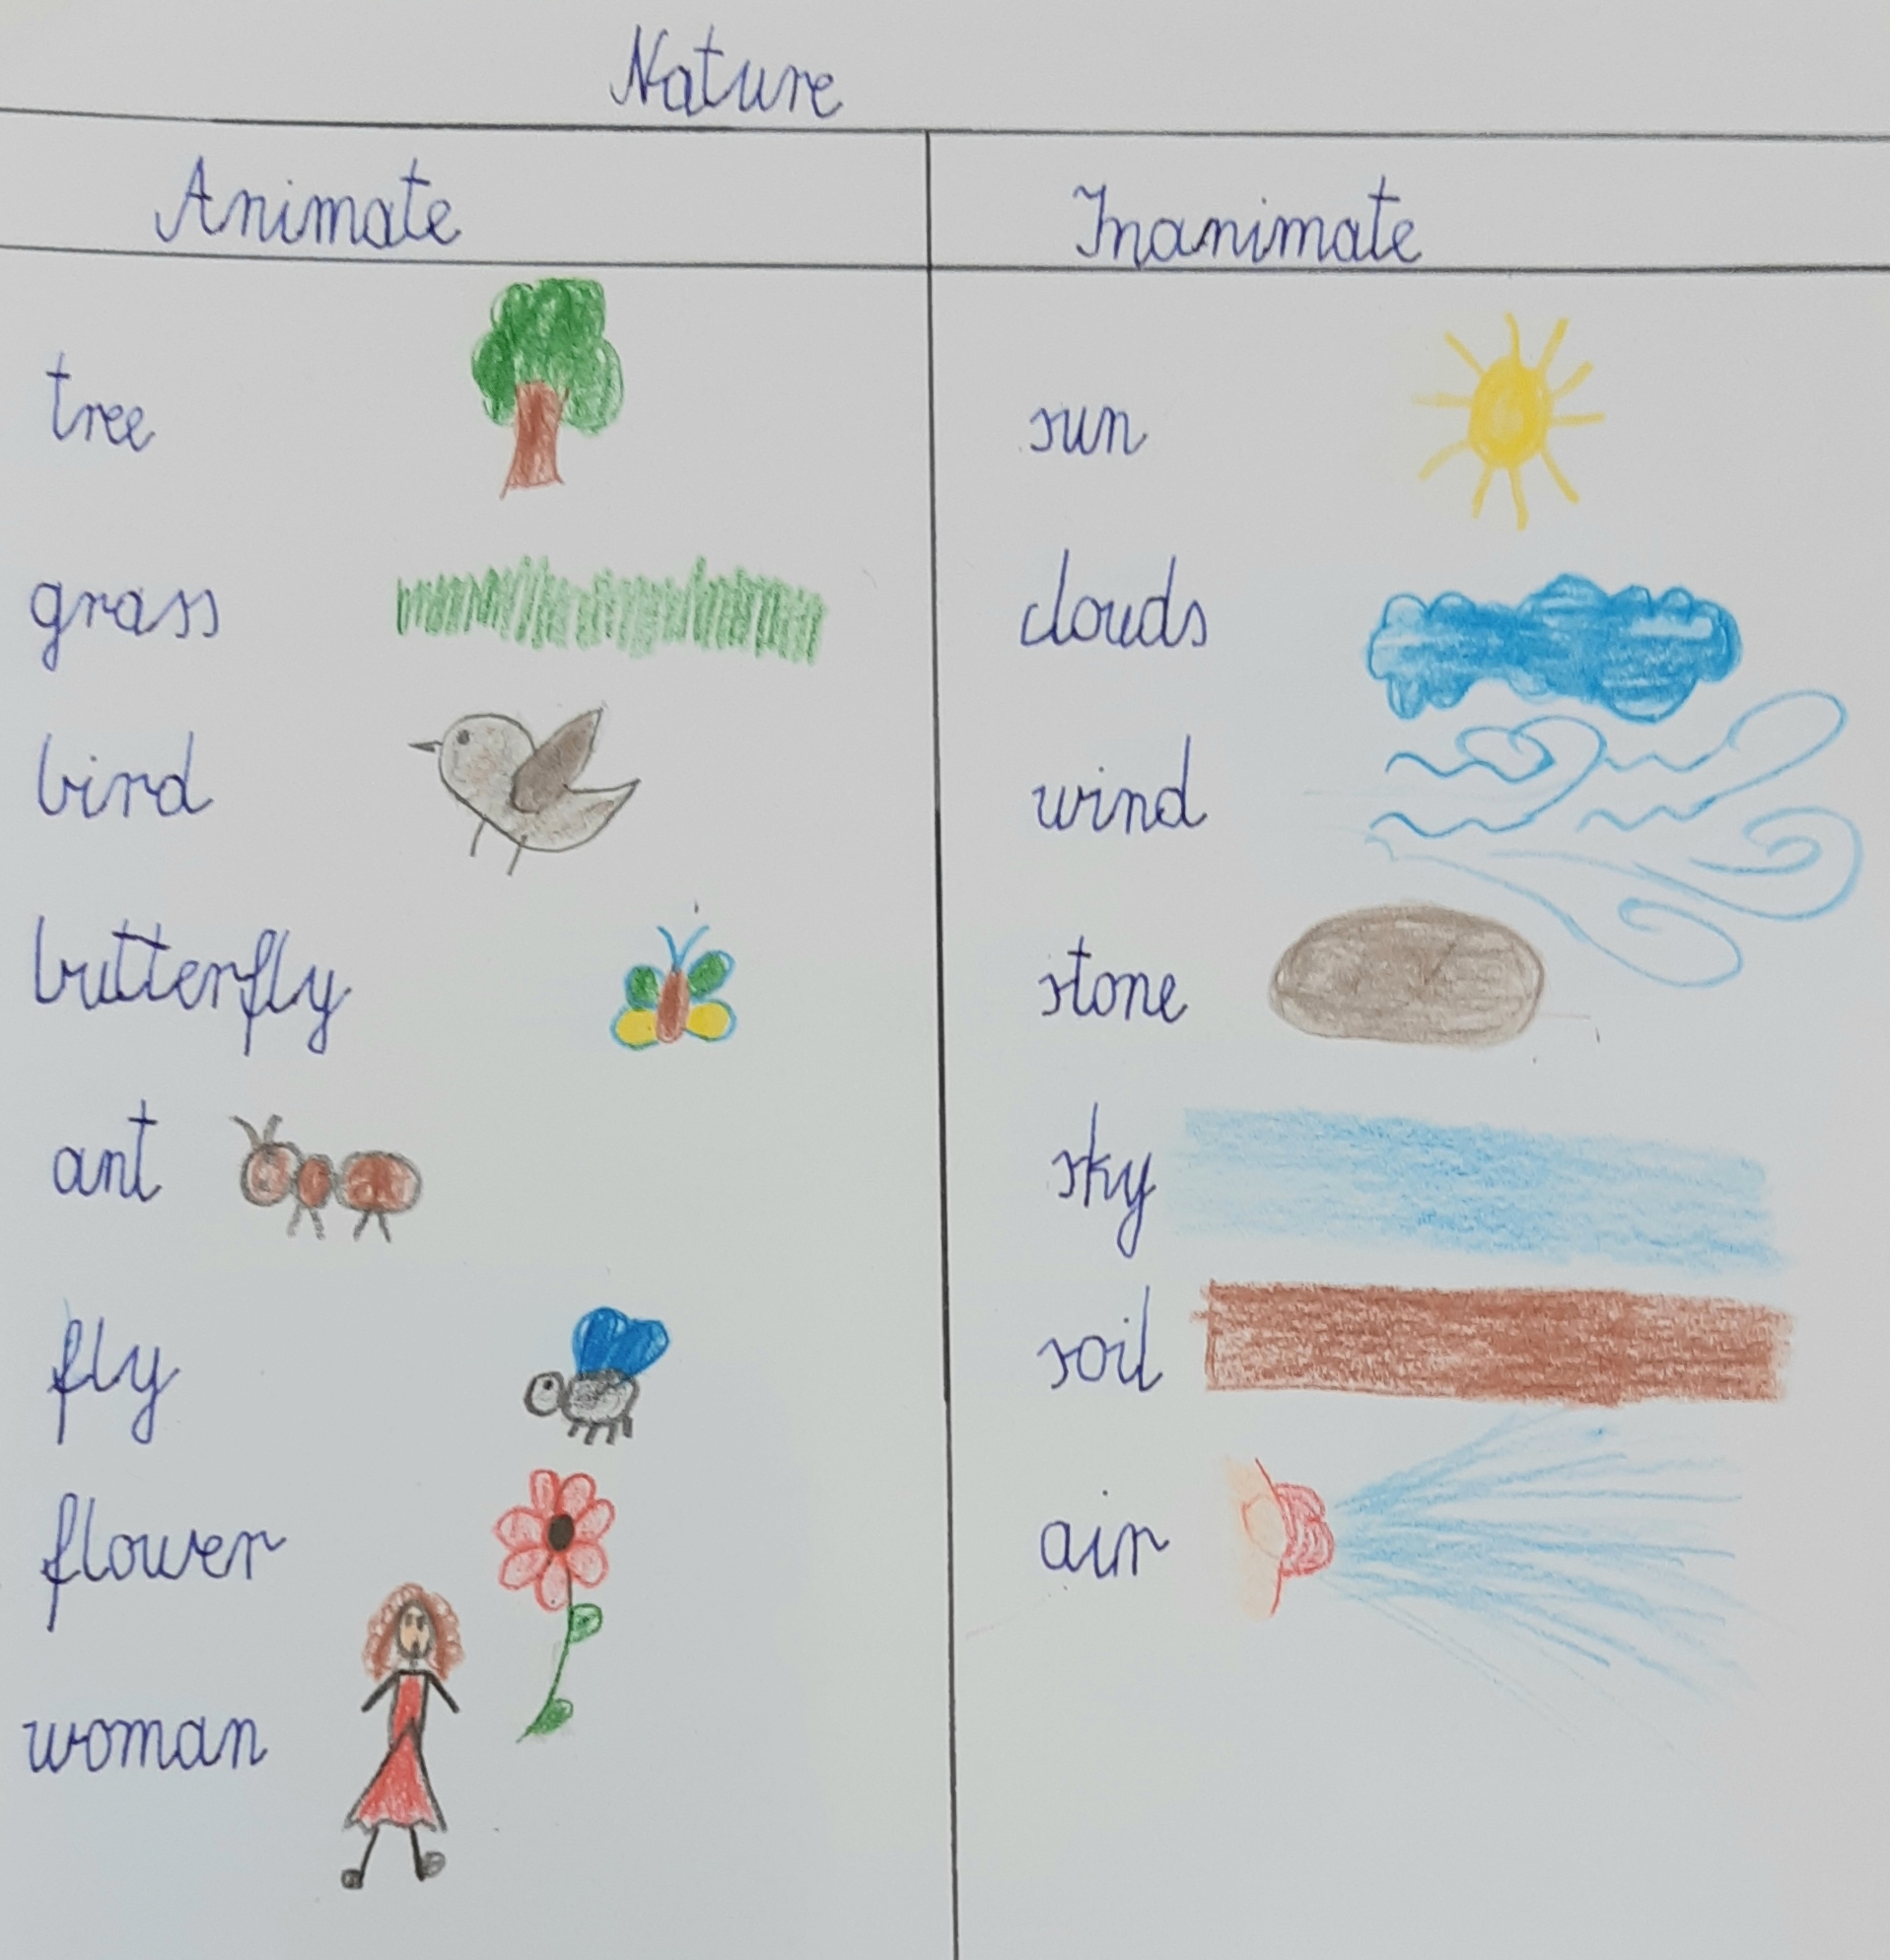 Nature
Animate
Inanimate
tree
sun
grass
clouds
bird
wind
butterfly
stone
ant
sky
fly
soil
flower
air
woman